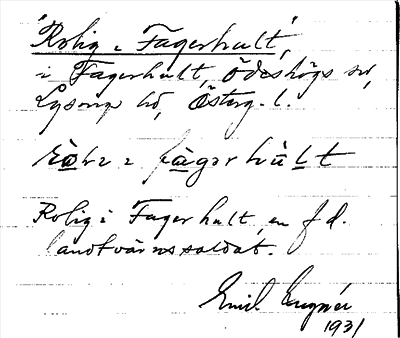 'Rolig i Fagerhult',
i Fagerhult, Ödeshögs sn,
Lysings hd, Österg. l.
i fàgərhùlt
Rolig i Fagerhult, en f d.
lantvärnssoldat.
Emil
1931